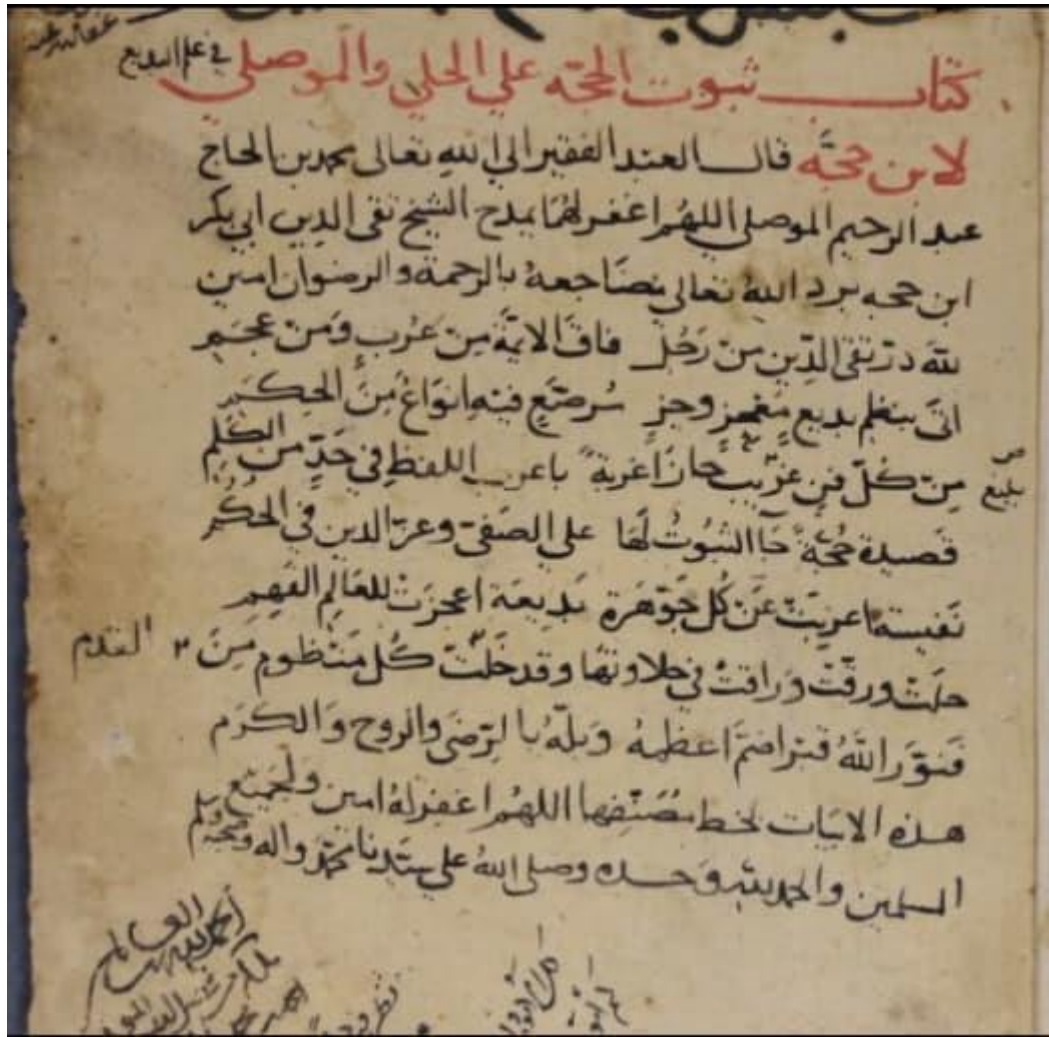 في علم البديع
كتاب ثبوت الحجه علي الحلي والموصلي
لابن حجّه قال العبد الفقير الي الله تعالى محمد بن الحاج
عبد الرحيم الموصلي اللهم اغفر لهما يمدح الشيخ تقى الدين ابي بكر
ابن حجه برد الله تعالى مضاجعه بالرحمة والرضوان امين
لله درّ تقى الدّين من رَجُل فاق الائمة من عُربٍ وَمن عجم
اتى بنظم بديع معجز وجز من الحكم
من كلّ فن غريب حاز اغربه باعرب اللفظ في حدٍّ من الكلم
بليغ
قصيدة حُجّة جا الثبوتُ لها علي الصَفىّ وعزّ الدين في الحكم
نفيسة اعربت عَن كل جَوْهَرة بديعة اعجزت للعَالِم الفهم
حلتْ ورقّتْ وَراقتْ في حلاوتها وقد خلتْ كُل منظوم مِنَ
القدم
فنوّر اللّهُ قبرا ضمّ اعظمهُ وَبلّهُ بالرّضى والروح وَالكرم
هذه الابيات بخط مُصَنّفها اللهم اغفر لهُ امين ولجميع
المسلمين والحمد لله وَحده وصلى الله على سيّدنا محمّد واله وصحبه وسلم